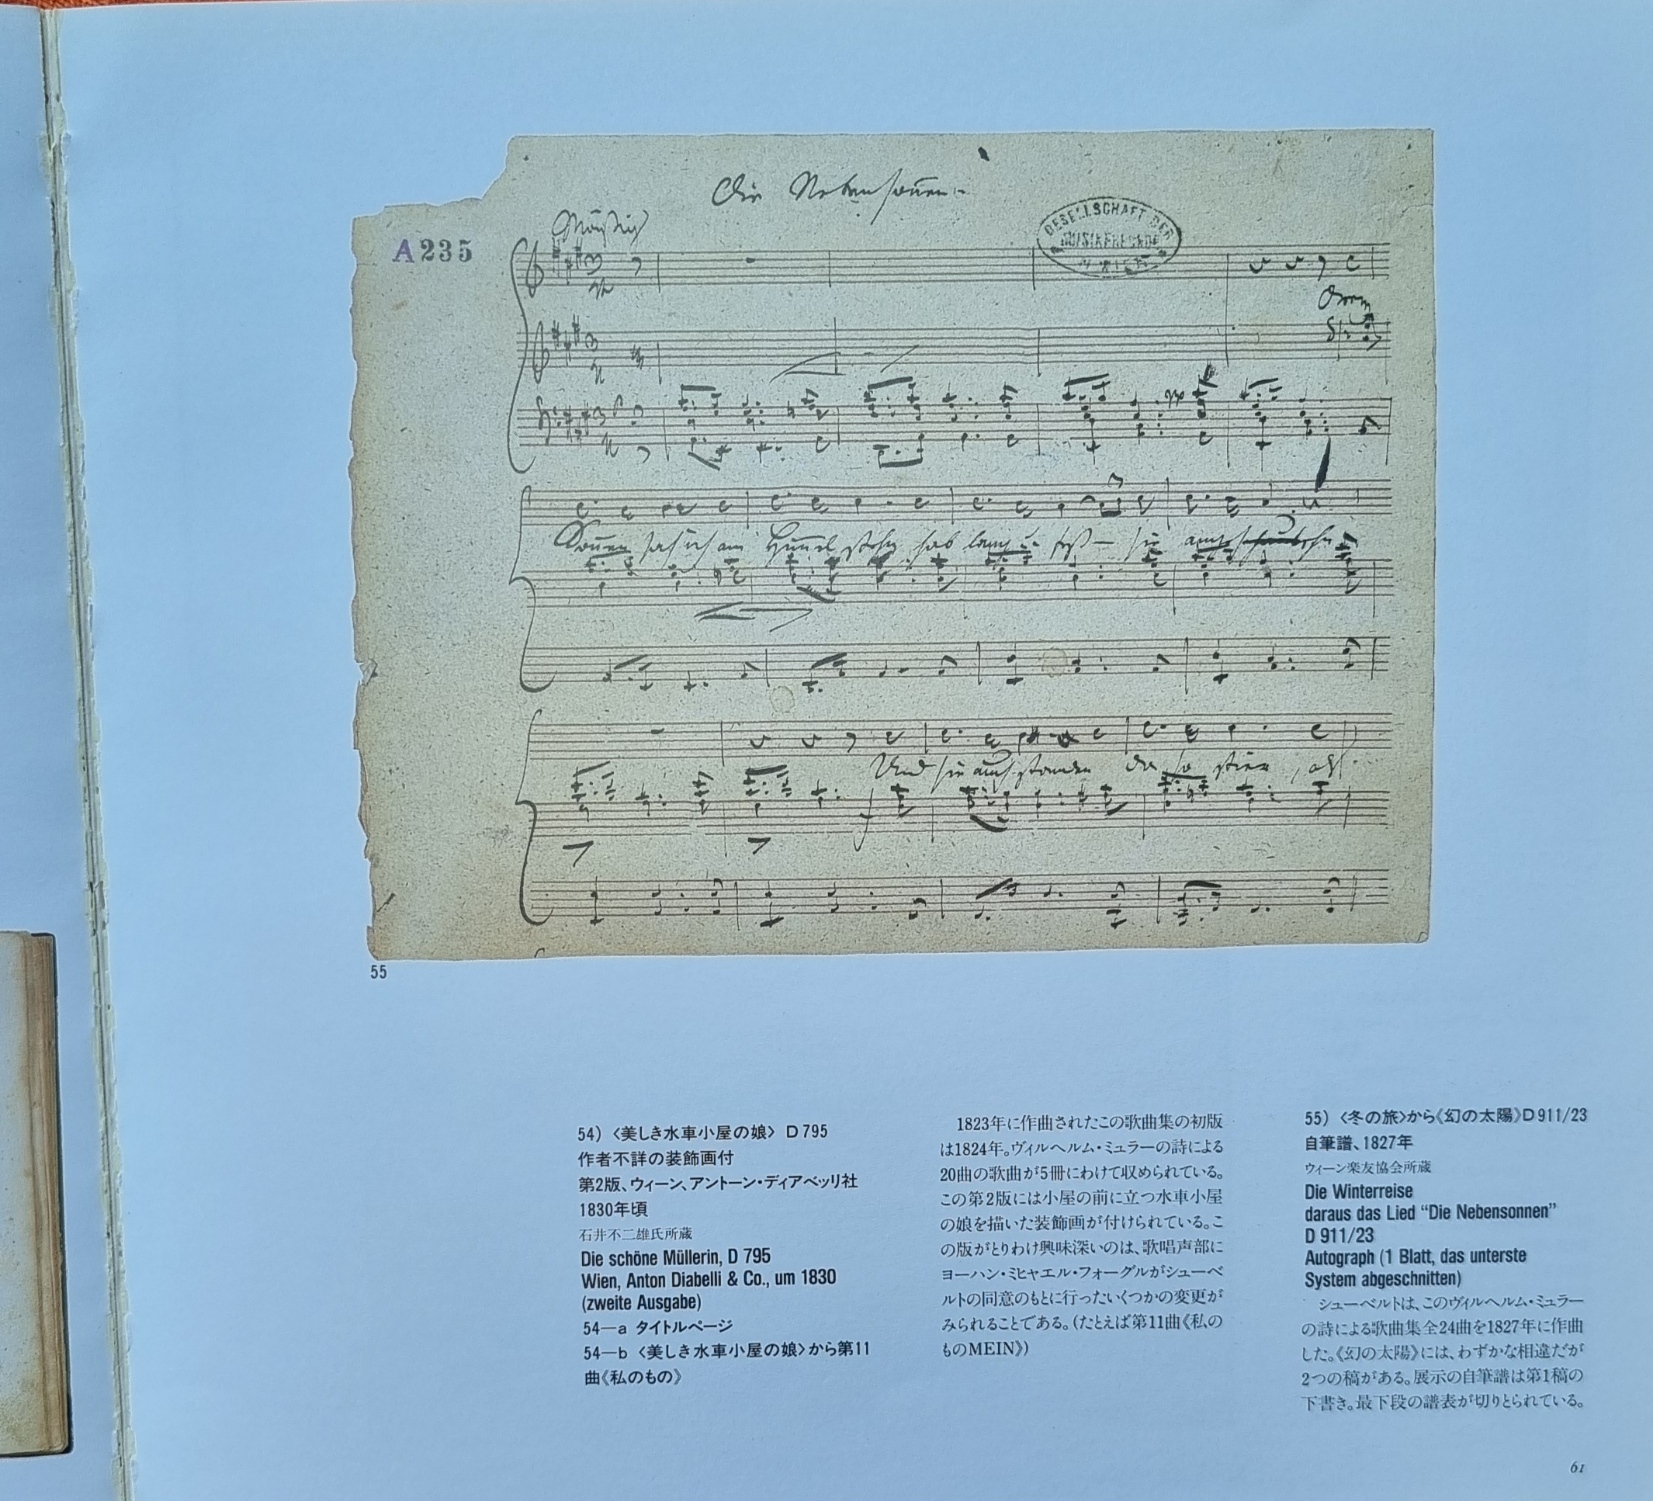 Die Nebensonnen.
Mäßig
A235
GESELLSCHAFT DER
MUSIKFREUNDE
IN WIEN
Drey
Sonnen sah ich am Himmel stehn hab lang u fest sie
Und sie auch standen da so stier, als
55
54) 〈美しき水車小屋の娘〉 D 795
作者不詳の装飾画付
第2版、ウィーン、アントーン・ディアベッリ社
1830年頃
石井不二雄氏所蔵
Die schöne Müllerin, D 795
Wien, Anton Diabelli & Co., um 1830
(zweite Ausgabe)
54—a タイトルページ
54—b 〈美しき水車小屋の娘〉から第11
曲《私のもの》
1823年に作曲されたこの歌曲集の初版
は1824年。ヴィルヘルム・ミュラーの詩による
20曲の歌曲が5冊にわけて収められている。
この第2版には小屋の前に立つ水車小屋
の娘を描いた装飾画が付けられている。こ
の版がとりわけ興味深いのは、歌唱声部に
ヨーハン・ミヒャエル・フォーグルがシューベ
ルトの同意のもとに行ったいくつかの変更が
みられることである。(たとえば第11曲《私の
ものMEIN》)
55) 〈冬の旅〉から《幻の太陽》D 911/23
自筆譜、1827年
ウィーン楽友協会所蔵
Die Winterreise
daraus das Lied “Die Nebensonnen”
D 911/23
Autograph (1 Blatt, das unterste
System abgeschnitten)
シューベルトは、このヴィルヘルム・ミュラー
の詩による歌曲集全24曲を1827年に作曲
した。《幻の太陽》には、わずかな相違だが
2つの稿がある。展示の自筆譜は第1稿の
下書き。最下段の譜表が切りとられている。
61